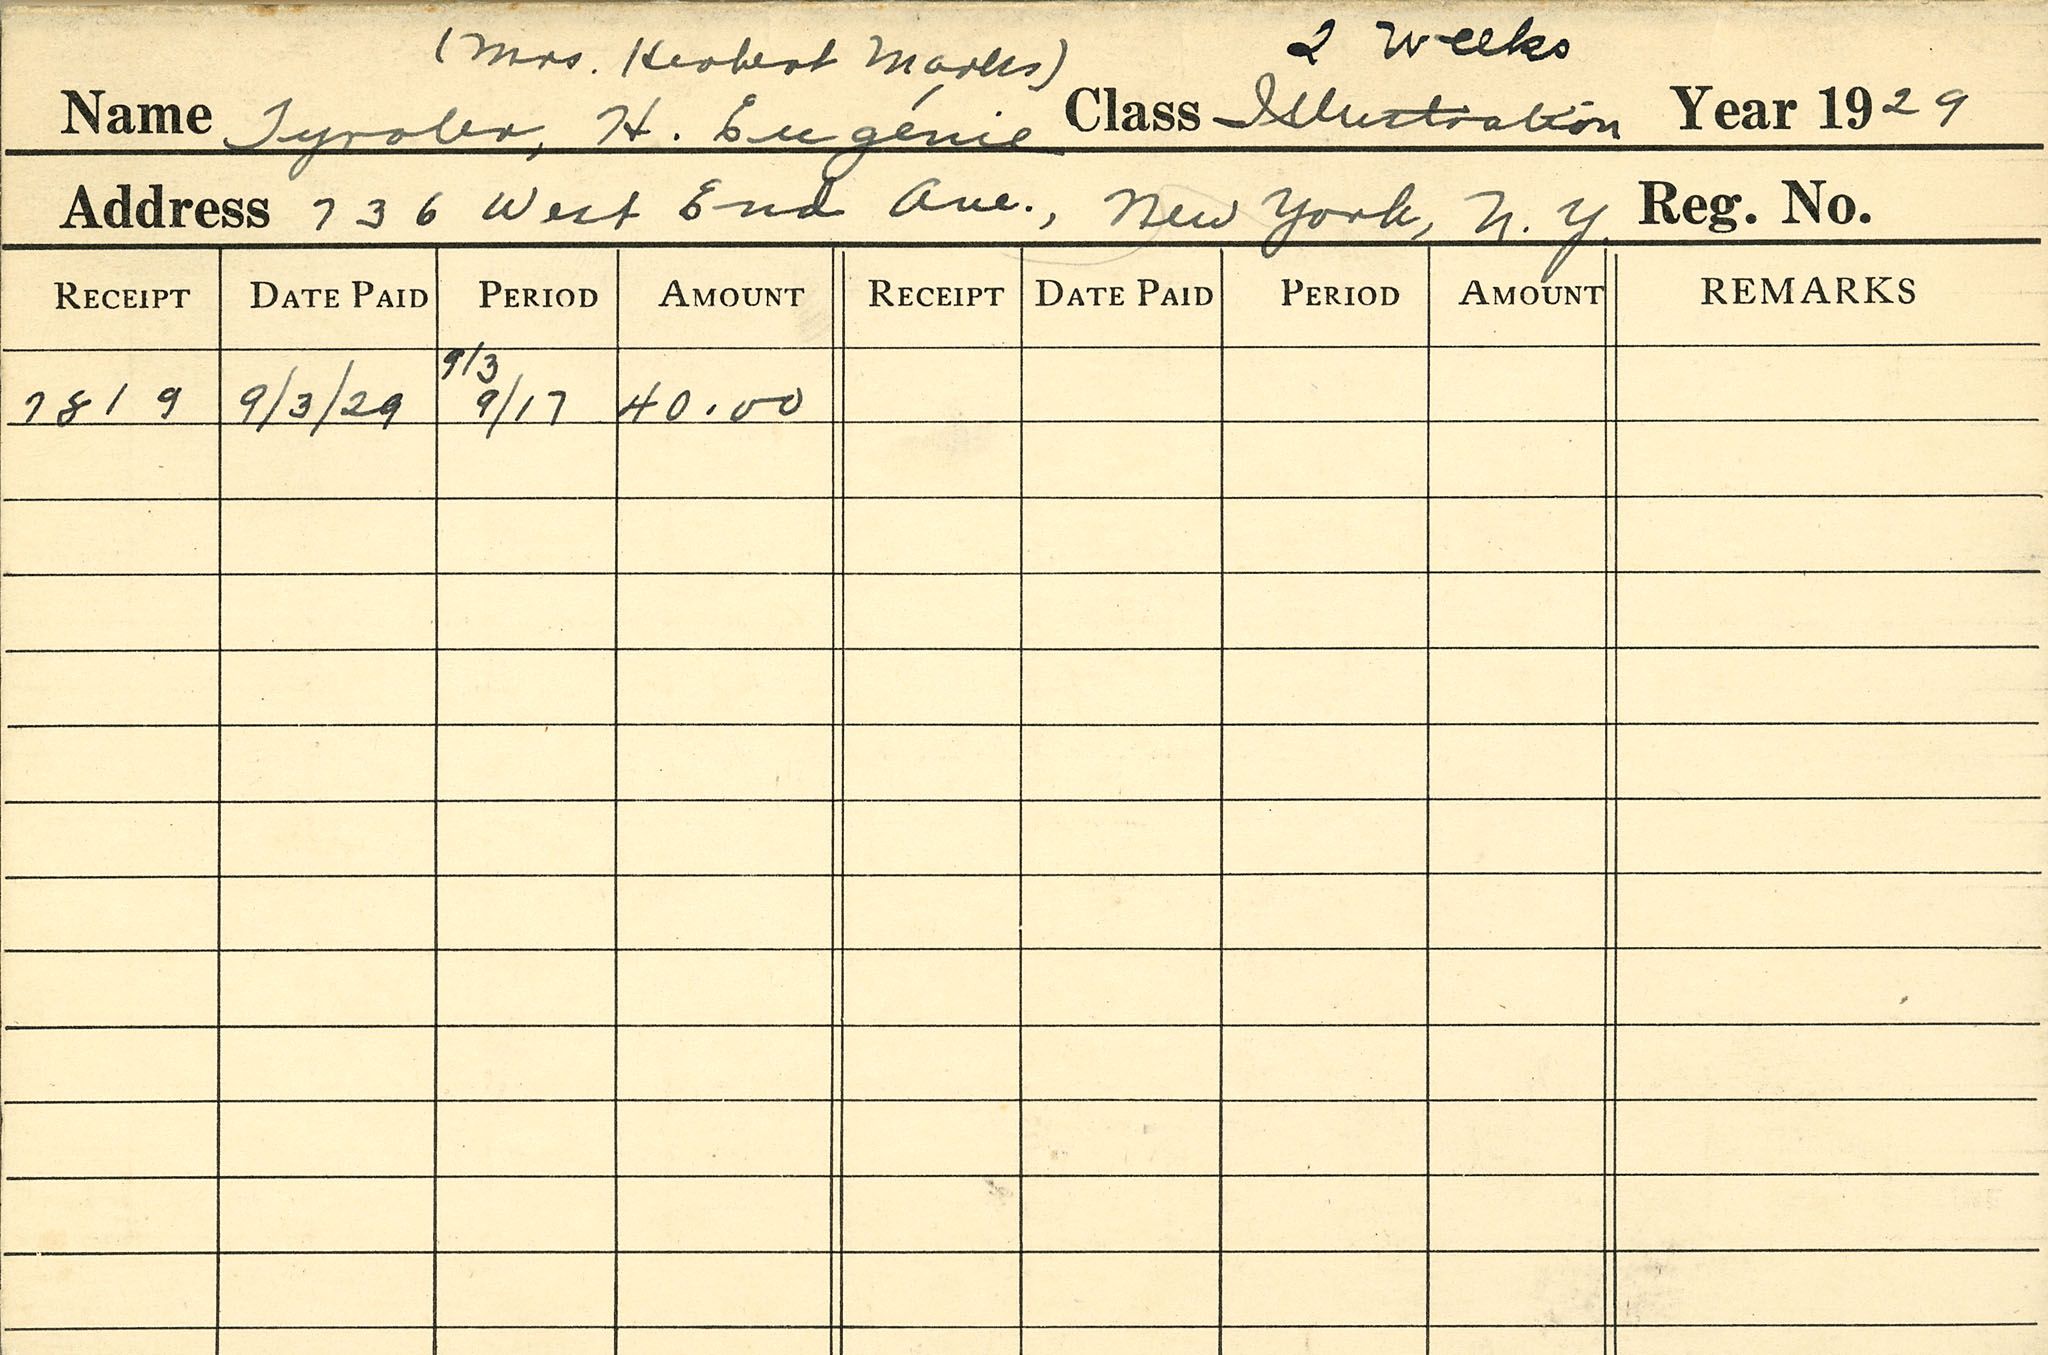 (Mrs. Herbert Marks) 2 Weeks
Name Tyroler, H. Eugénie Class Illustration Year 1929
Address 736 West End Ave., New York, N.Y. Reg. No.
RECEIPT DATE PAID PERIOD AMOUNT RECEIPT DATE PAID PERIOD AMOUNT REMARKS
9/3
7819 9/3/29 9/17 40.00